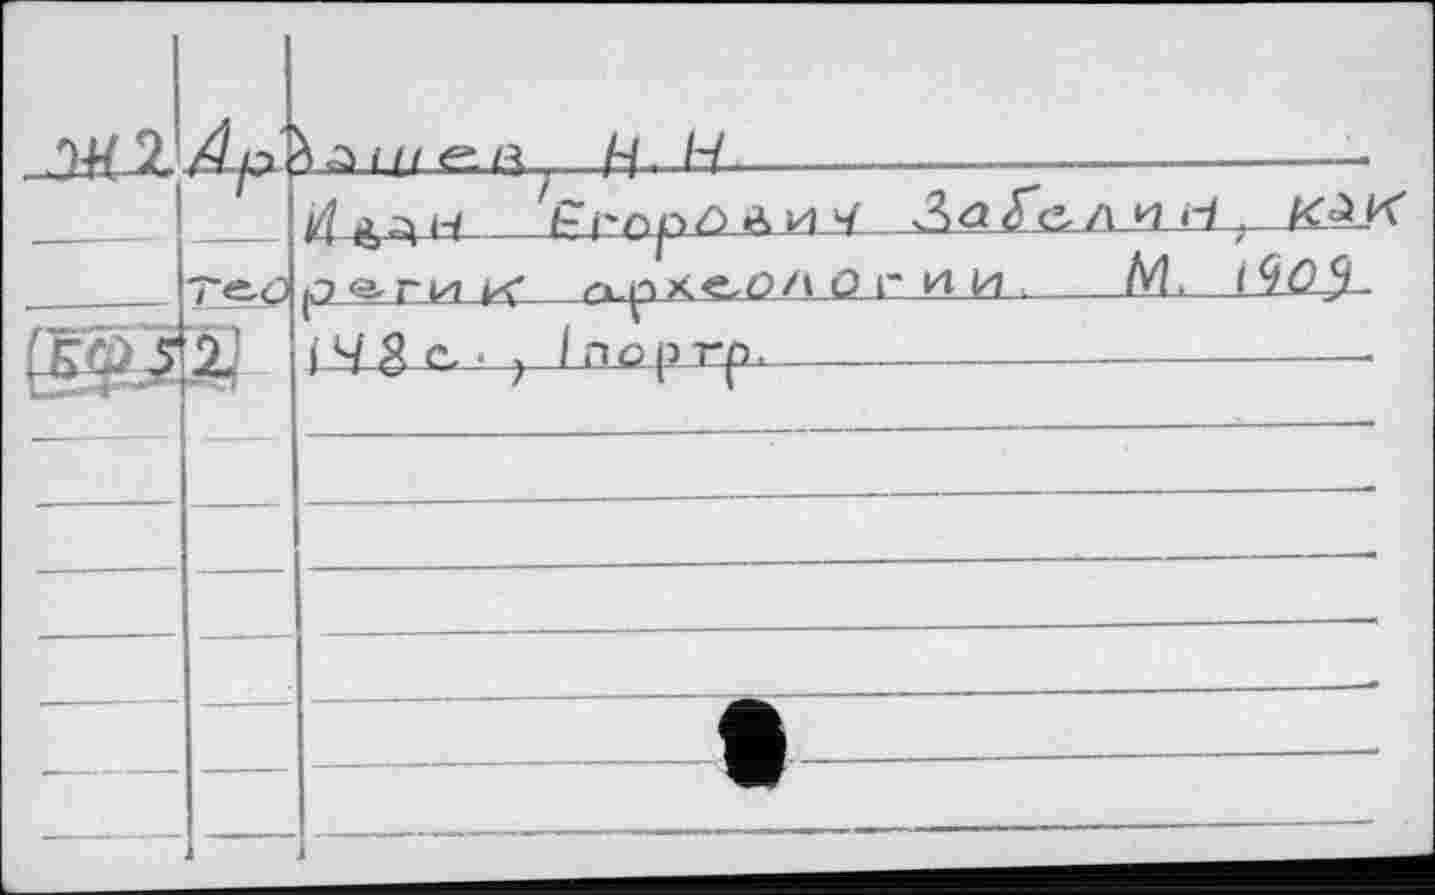 ЭК2 Ардашев, Н. Н.
Иван Егорович Забелин, как
теоретик археологии. М. 1909
[БФ52] 148 с., 1 портр.